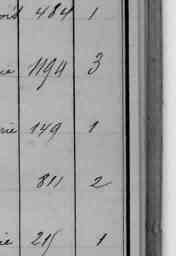 484 1
1194 3
149 1
811 2
215 1